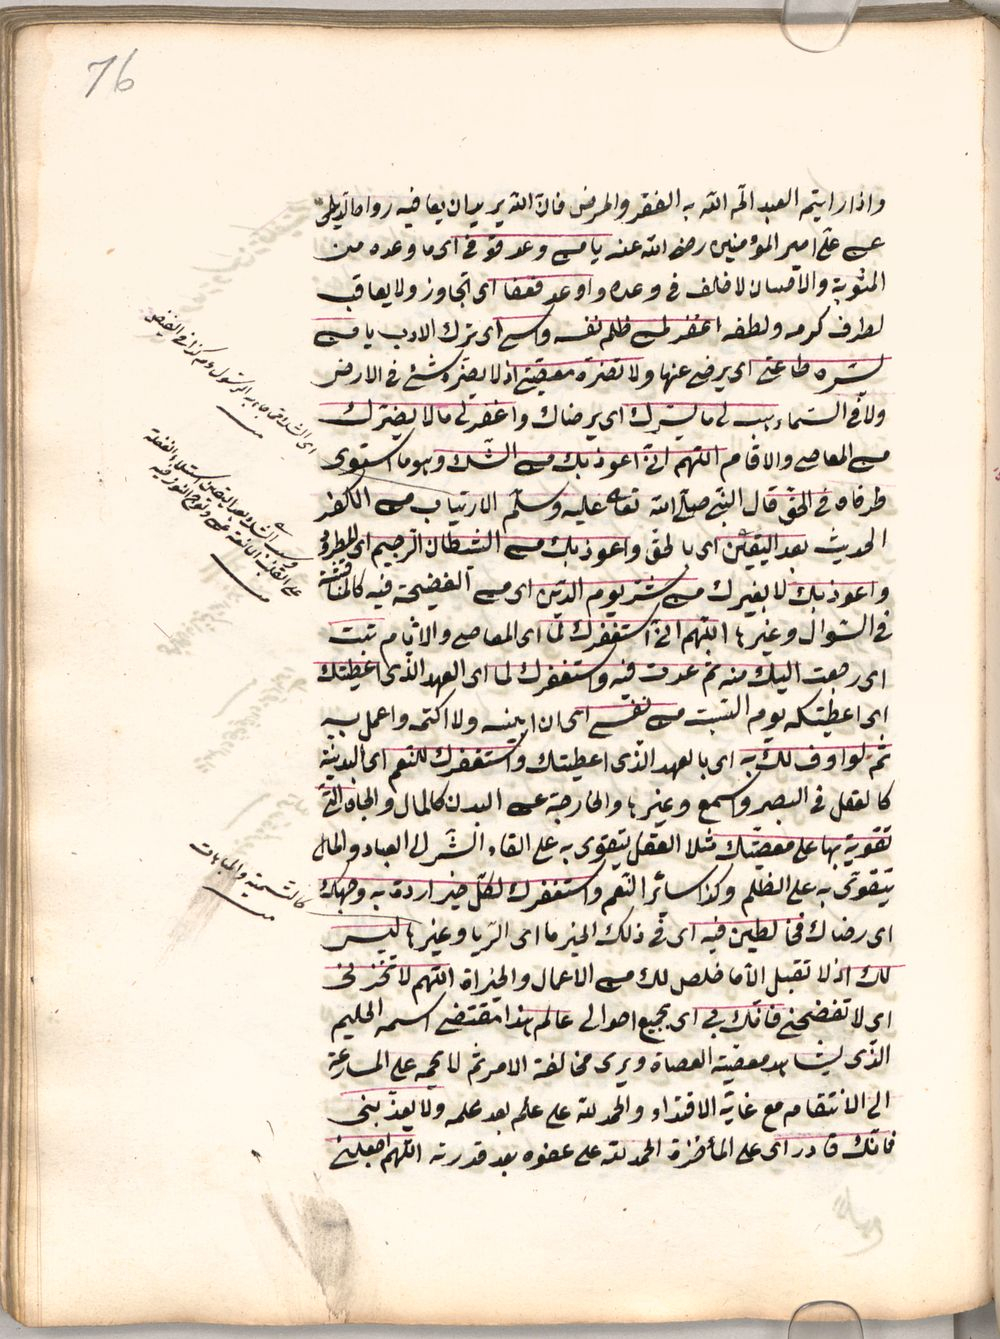 76
واذا رايتم العبد الم الله به الفقر والمرض فان الله يريد ان يصافيه رواه الديلمى
عن على امير المؤمنين رضى الله عنه يا من وعد فوفى اى ما وعده من
المثوبة والاحسان لا خلف فى وعده واوعد فعفا اى تجاوز ولا يعاقب
لطرف كرمه ولطفه اغفر لمن ظلم نفسه وسى اى ترك الادب يا من
يسره طاعتى اى يرضى عنها ولا تضره معصيتى اذ لا يضره شئ فى الارض
ولا فى السماء هب لى ما يسرك اى يرضاك واغفر لى ما لا يضرك
من المعاصى والاثام اللهم انى اعوذ بك من الشك وهو ما استوى
طرفاه فى الحق قال النبى صلى الله تعالى عليه وسلم الارتياب من الكفر
الحديث بعد اليقين اى بالحق واعوذ بك من الشيطان الرجيم اى المطرود
واعوذ بك لا بغيرك من شر يوم الدين اى من الفضيحة فيه كالمناقشة
فى السؤال وغيرها اللهم انى استغفرك لما اى المعاصى والاثام تبت
اى رجعت اليك منه ثم عدت فيه واستغفرك لما اى العهد الذى اعطيتك
اى اعطيتكه يوم الست من نفسى اى ان ابينه ولا اكتمه واعمل به
ثم لم اوف لك به اى بالعهد الذى اعطيتك واستغفرك للنعم اى البدنية
كالعقل فى البصر والسمع وغيرها والخارجة عن البدن كالمال والجاه التى
تقويت بها على معصيتك مثلا العقل يتقوى به على القاء الشر الى العباد والمال
يتقوى به على الظلم وكذا سائر النعم واستغفرك لكل خير اردت به وجهك
اى رضاك فخالطنى فيه اى فى ذلك الخير ما اى الريا وغيرها ليس
لك اذ لا تقبل الا ما خلص لك من الاعمال والخيرات اللهم لا تخزنى
اى لا تفضحنى فانك بى اى بجميع احوالى عالم هذا مقتضى اسمه الحليم
الذى يشاهد معصية العصاة ويرى مخالفة الامر ثم لا يحمه على المسارعة
الى الانتقام مع غاية الاقتدار والحمد لله على حلمه بعد علمه ولا تعذبنى
فانك قادر اى على المأخذة الحمد لله على عفوه بعد قدرته اللهم اجعلنى
كالسمعة والمباهات
منه